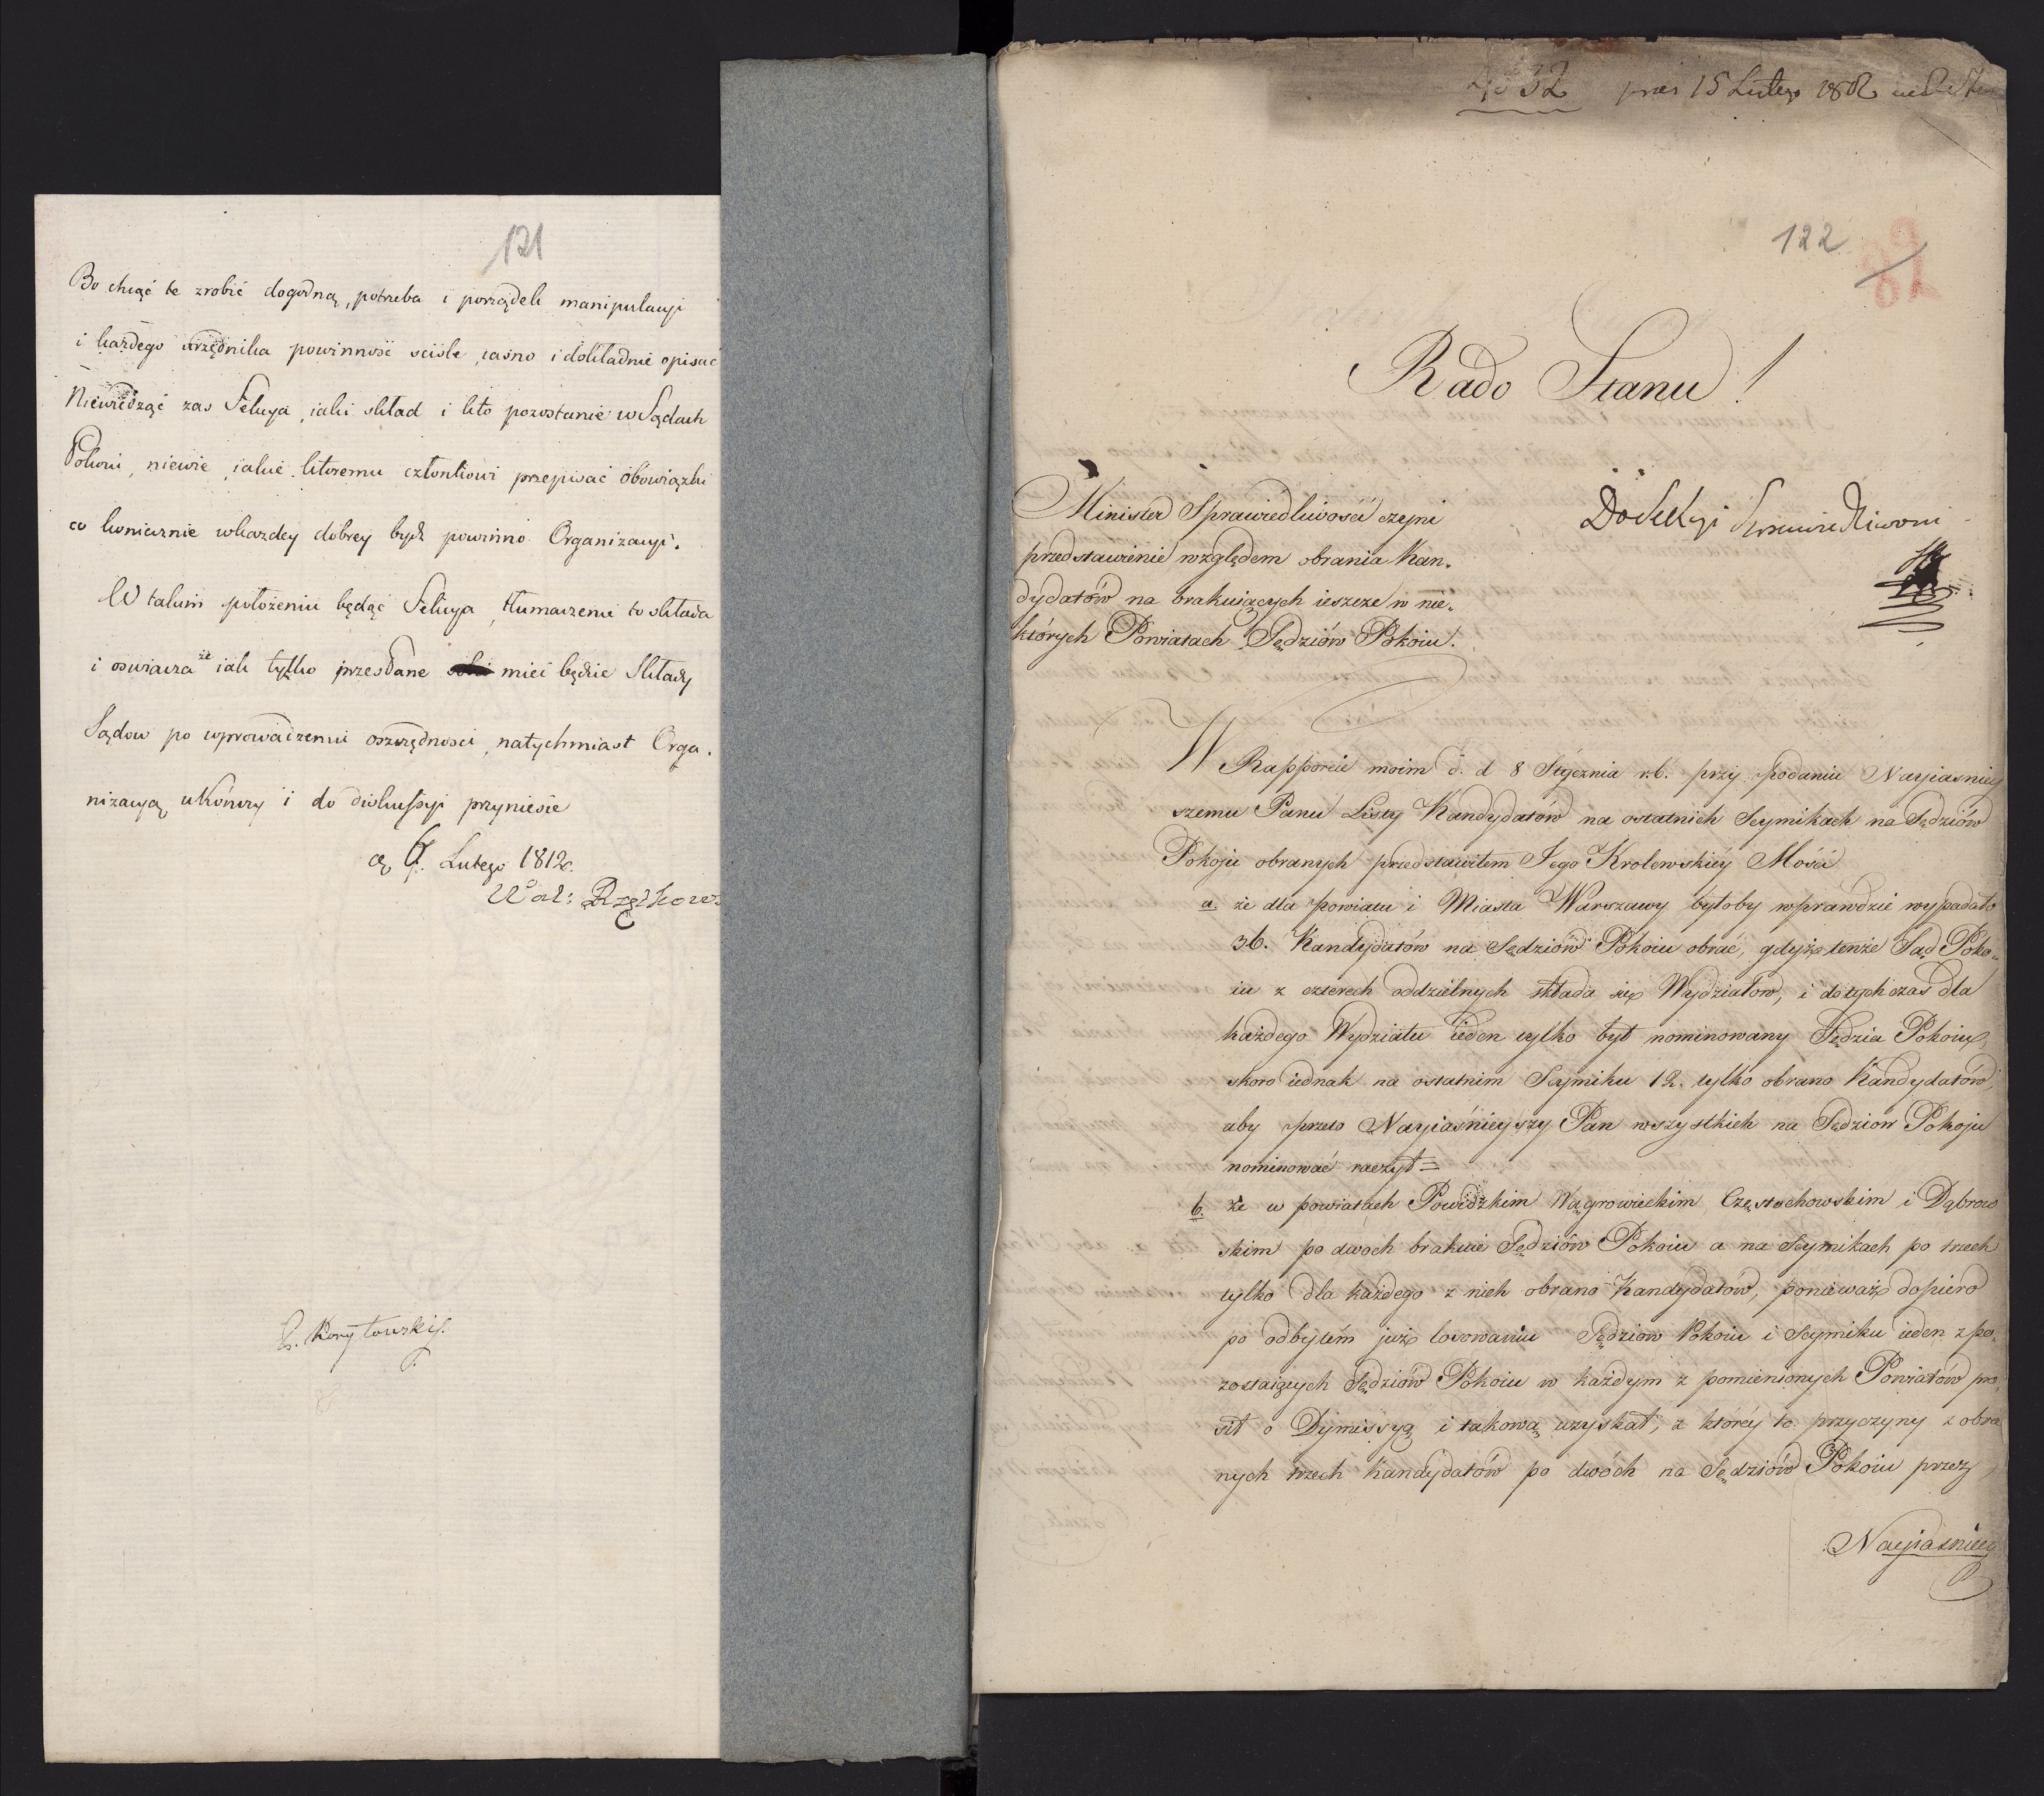 121
Bo chcąc te zrobić dogodną, potrzeba i porządek manipulacyi
i każdego urzędnika powinność scisle, iasno i dokładnie opisać
Niewiedząć zas Sekcya, iaki skład i kto pozostanie w Sądach
Pokoiu, niewie, iakie któremu członkowi przepisać obowiązki
co koniecznie wkazdey dobrey bydź powinno Organizacyi.
W takim położeniu będąc Sekcya, tłumaczenie to składa
i oswiacza że iak tylko przesłane mieć będzie Składy
Sądow po wprowadzeniu oszczędnosci, natychmiast Orga.
nizacyą ukończy i do diskussyi przyniesie
Lutego 1812.
Wal:
Korytowski
№ 32 prez 15 Lutego 1812
122
Rado Stanu!
Minister Sprawiedliwości czyni
przedstawienie względem obrania Kan„
dydatów na brakuiących ieszcze w nie„
których Powiatach Sędziów Pokoiu.
Do Sekcyi Sprawiedliwości
W Rapporcie moim d. d 8 Stycznia r.b. przy podaniu Nayiasniey
szemu Panu Listy Kandydatów na ostatnich Seymikach na Sędziów
Pokoju obranych przedstawiłem Jego Krolewskiéy Mości
a. że dla powiatu i Miasta Warszawy byłoby wprawdzie wypadało
36. Kandydatów na Sędziów Pokoiu obrać, gdyż tenże Sąd Poko„
iu z czterech oddzielnych składa się Wydziałow, i dotychczas dla
każdego Wydziału ieden tylko był nominowany Sędzia Pokoiu,
skoro iednak na ostatnim Seymiku 12. tylko obrano Kandydatów,
aby przeto Nayiaśnieyszy Pan wszystkich na Sędziow Pokoju
nominować raczył =
b. że w powiatach Powidzkim Wągrowieckim Częstochowskim i Dąbrow
skim po dwóch brakuie Sędziów Pokoiu a na Seymikach po trzech
tylko dla każdego z nich obrano Kandydatów, ponieważ dopiero
po odbytém już losowaniu Sędziow Pokoiu i Seymiku ieden z po„
zostaiących Sędziów Pokoiu w każdym z pomienionych Powiatów pro„
sił o Dymissyą i takową uzyskał, z któréy to przyczyny z obra
nych trzech kandydatów po dwóch na Sędziów Pokoiu przez
Nayiasniey